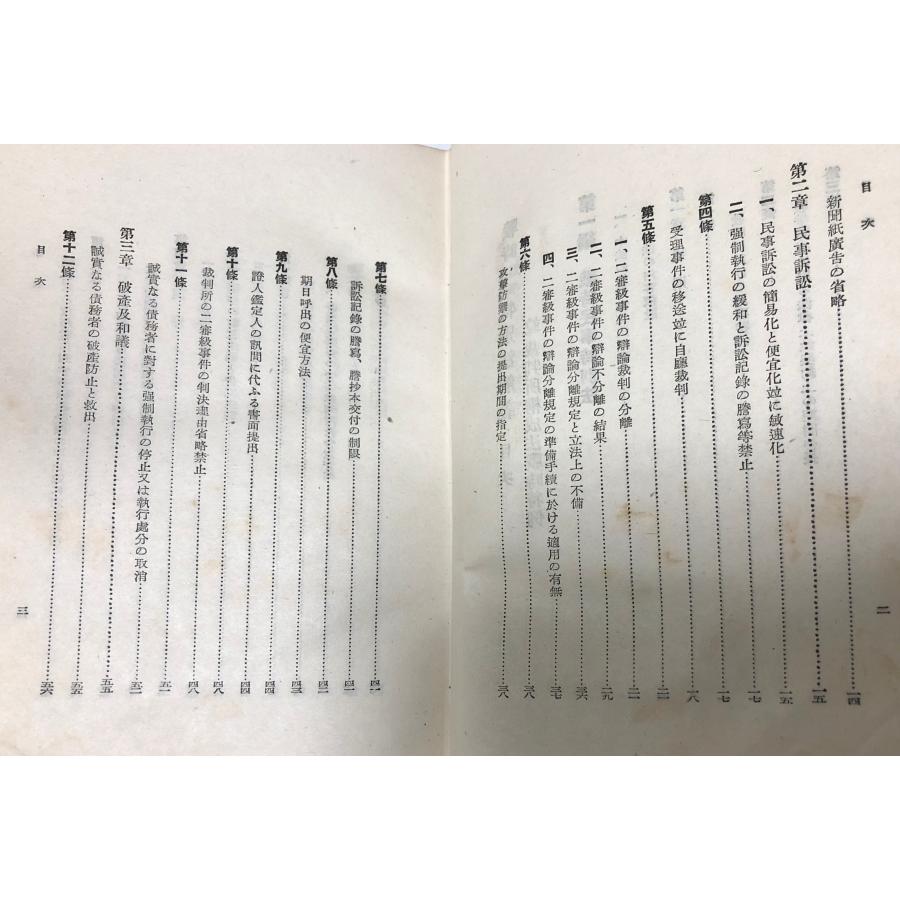 目次
三 新聞紙廣告の省略……一四
第二章 民事訴訟……一五
一、民事訴訟の簡易化と便宜化並に敏速化……一五
二、强制執行の緩和と訴訟記錄の謄寫等禁止……一七
第四條……一七
受理事件の移送並に自廳裁判……一八
第五條……二一
一、二審級事件の辯論裁判の分離……二一
二、二審級事件の辯論不分離の結果……二九
三、二審級事件の辯論分離規定と立法上の不備……三六
四、二審級事件の辯論分離規定の準備手續に於ける適用の有無……三七
第六條……三八
攻擊防禦の方法の提出期間の指定……三八
二
第七條……四一
訴訟記錄の謄寫、謄抄本交付の制限……四一
第八條……四二
期日呼出の便宜方法……四三
第九條……四四
證人鑑定人の訊問に代ふる書面提出……四四
第十條……四八
裁判所の二審級事件の判決理由省略禁止……四八
第十一條……五一
誠實なる債務者に對する强制執行の停止又は執行處分の取消……五二
第三章 破產及和議……五五
誠實なる債務者の破產防止と救出……五五
第十二條……五六
目次
三